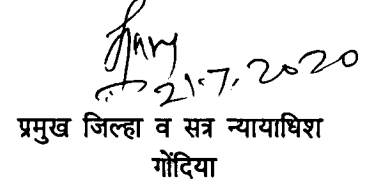 21.7.2020
प्रमुख जिल्हा व सत्र न्यायाधिश
गोंदिया